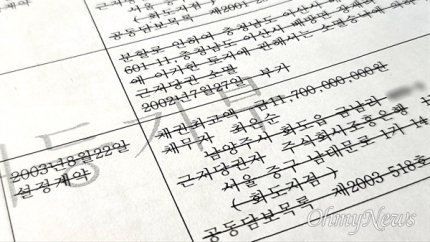 계약
( 회도지점 )
공동담보목록 제2001-
분할로 인하여 충청남도 아산시
601-11, 충청남도 아산시 배방면
에 이기한 토지에 관해서는 소멸
근저당권 소멸
2002년7월27일 부기
2003년8월22일
설정계약
채권최고액 금11,700,000,000원
채무자 최
남양주시 화도읍 금남리
근저당권자 주식회사조흥은행
서울 중구 남대문로 1가 14
( 화도지점 )
공동담보목록 제2003-518호
OhmyNews